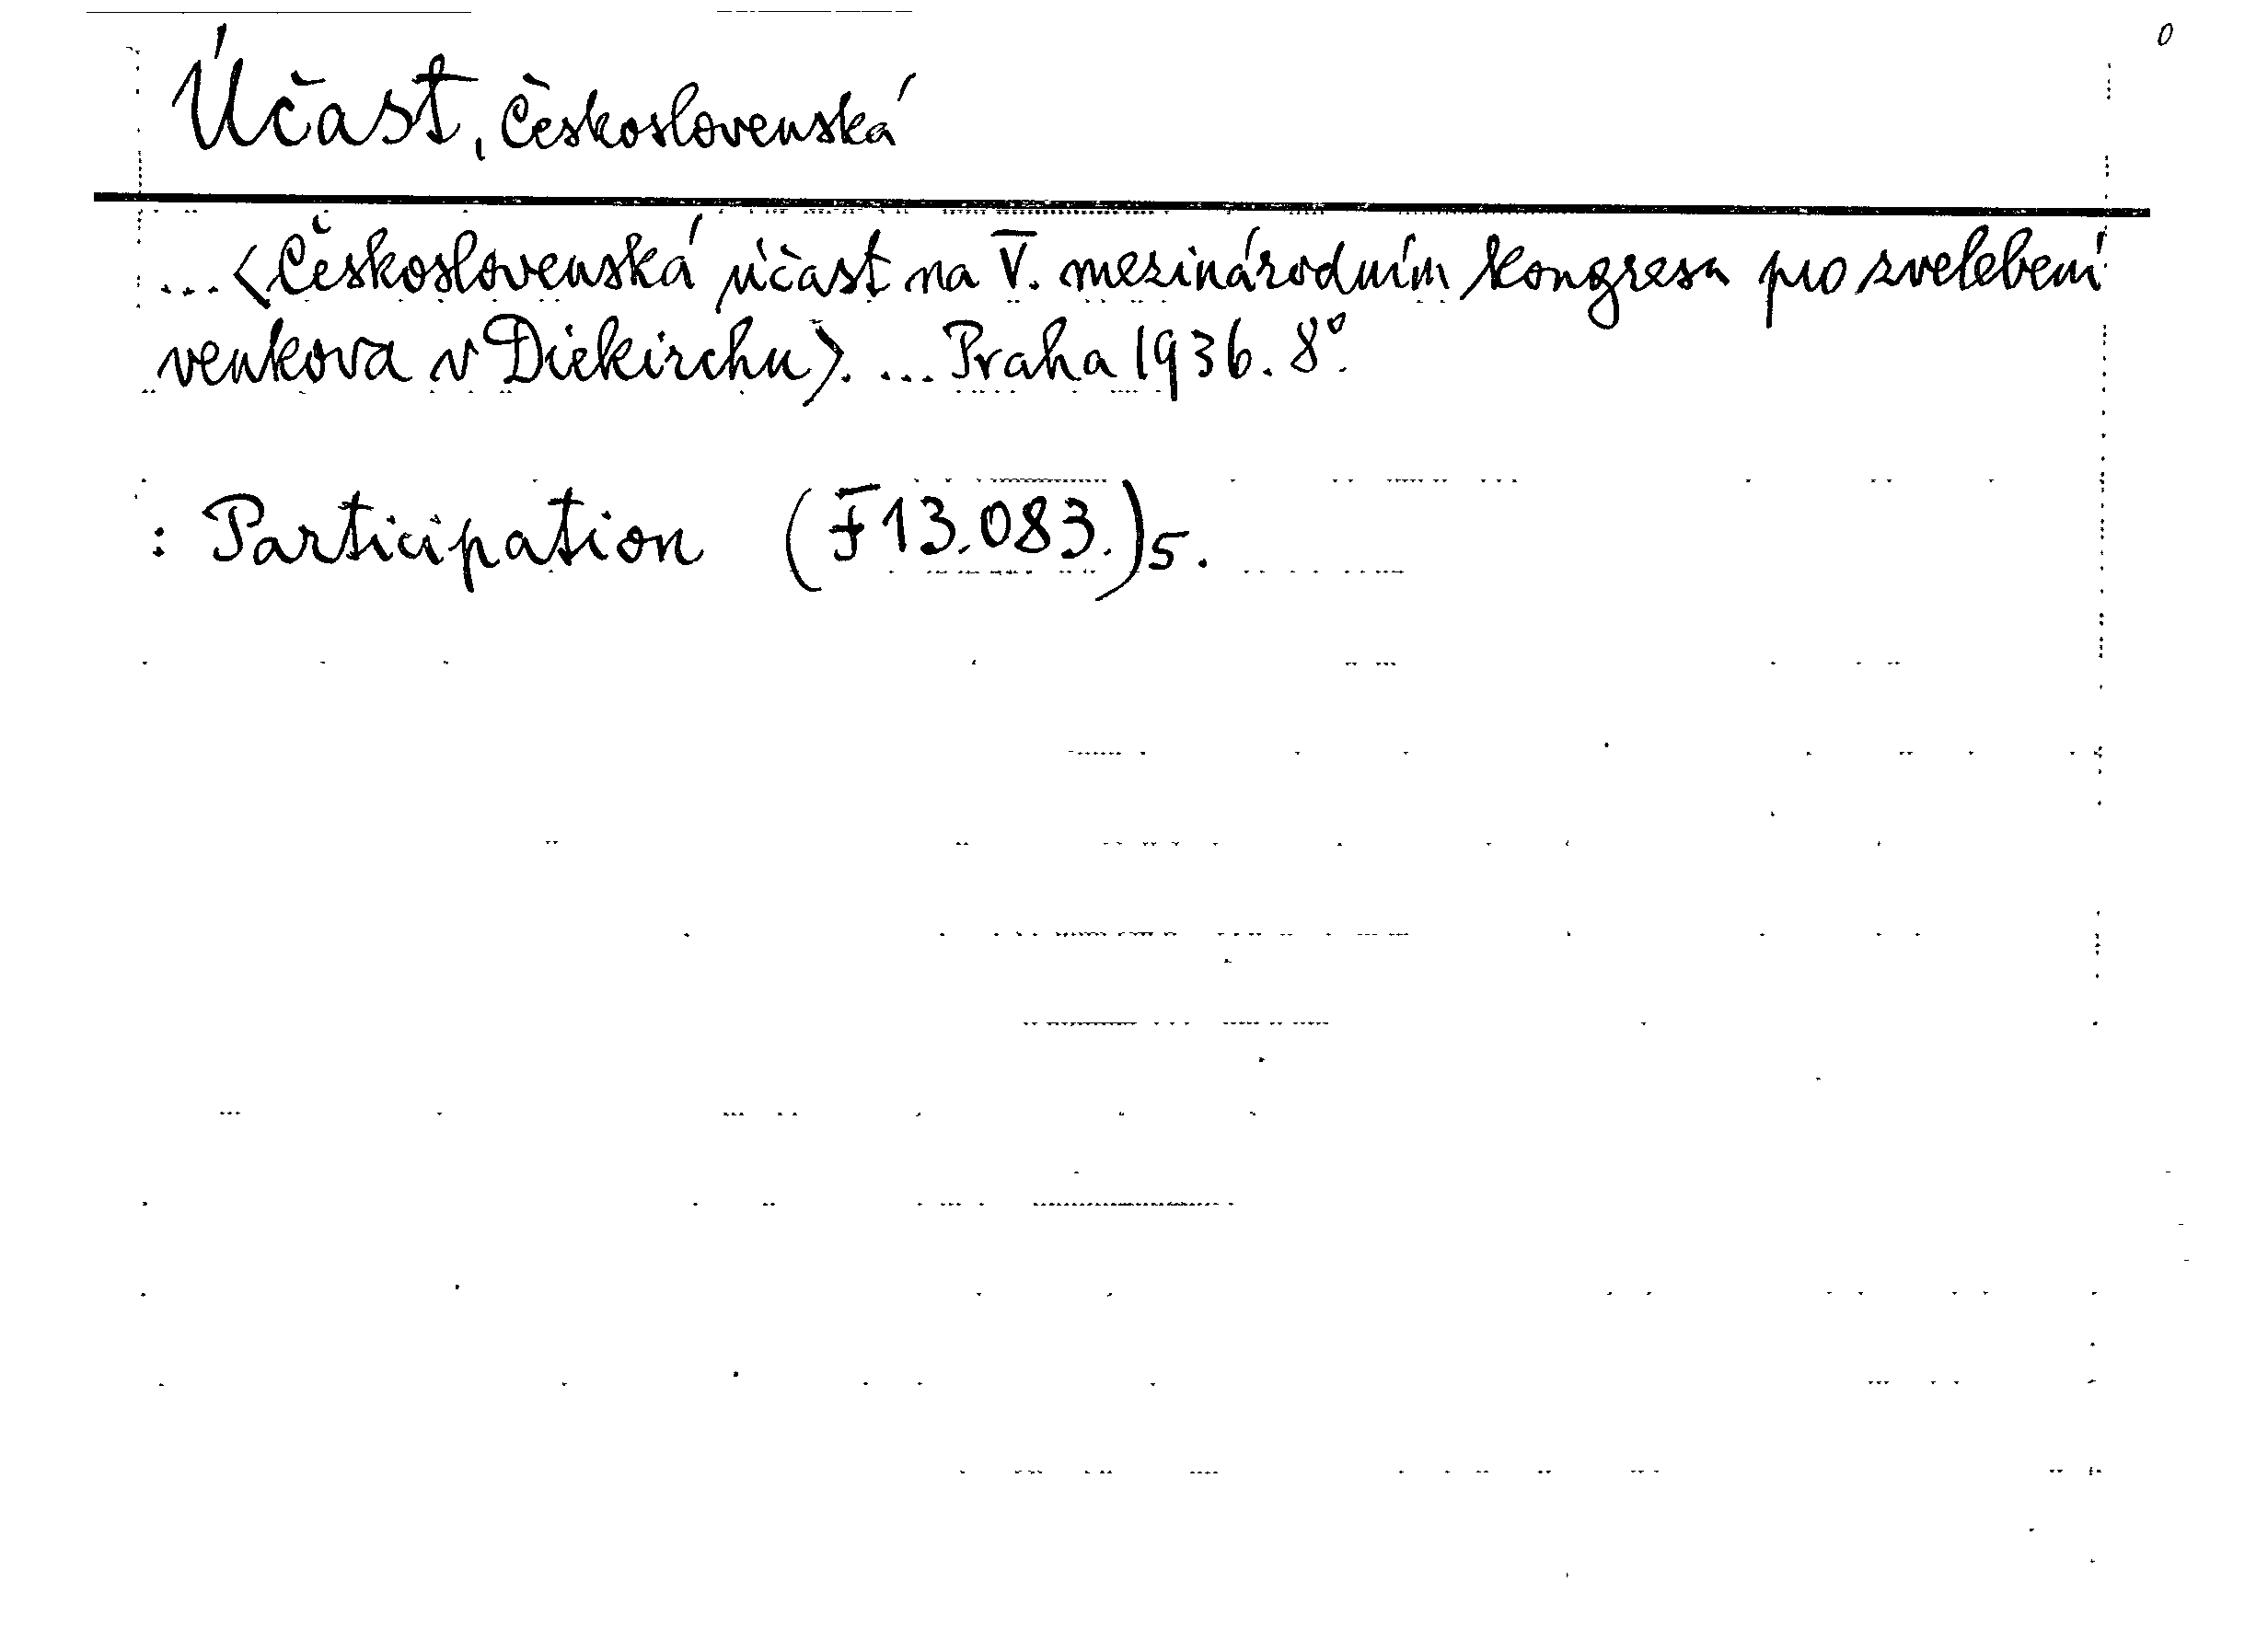 0
Účast, československá
... <Československá účast na V. mezinárodním kongresu pro zvelebení
venkova v Diekirchu>. ... Praha 1936. 8°.
: Participation (F 13.083.)5.